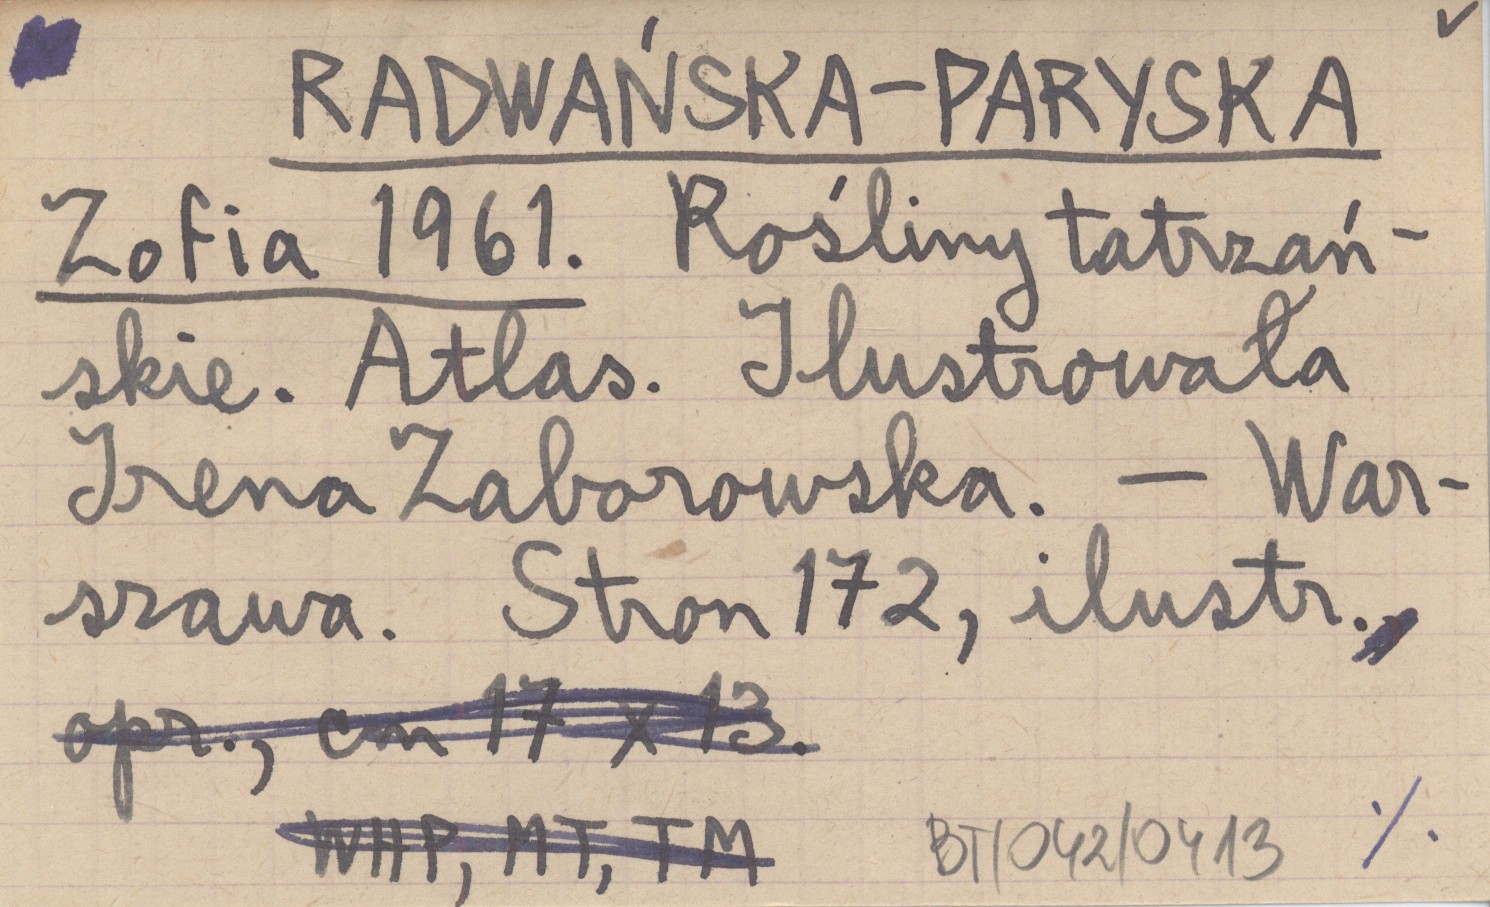 RADWAŃSKA-PARYSKA
Zofia 1961. Rośliny tatrzań-
skie. Atlas. Ilustrowała
Irena Zaborowska. — War-
szawa. Stron 172, ilustr.,
opr., cm 17 x 13.
WHP, MT, TM
BT/042/0413 ·/.